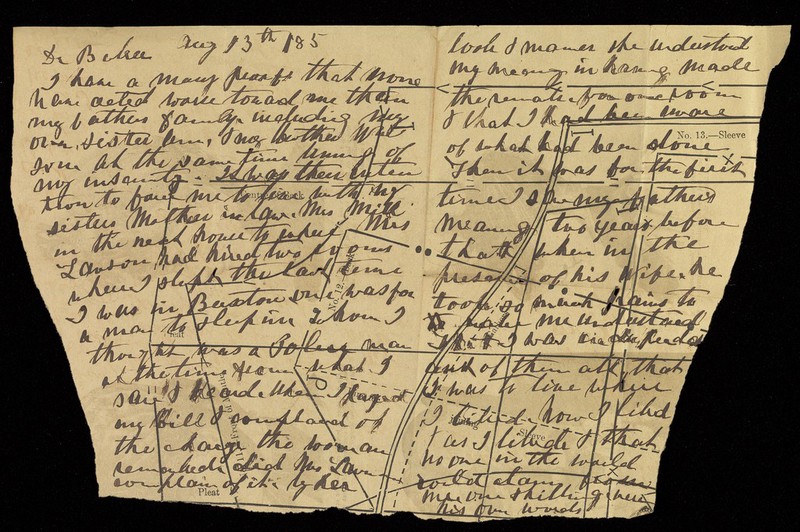 Dr Baker Aug 13th 185
I have a many proofs that none
have acted worse toward me than
my fathers family including my
own sister Ann, & my brother
at the same time
my insanity. It was their inten
tion to force me to live with my
sisters Mother in law Mrs Mill
in the next house to where Mrs
Lawson had hired two rooms
where I slept the last time
I was in Boston one was for
a man to sleep in whom I
thought was a Police man
at the time from what I
saw & heard when I payed
my bill I complaind of
the charge the woman
remarked did Mrs Law
complain of it by her
look & maner she understood
my meaning in having made
the remark from one room
& that I had been more
of what had been done
Then it was for the first
time I saw my fathers
meaning two years before
that when in the
presence of his wife he
took so much pains to
make me understand
that I was independent
of them all, that
I was to live where
I liked how I liked
& as I liked & that
no one in the world
could
me one shilling
his own words
No. 13.—Sleeve
No. 12.—
Sleeve
Pleat